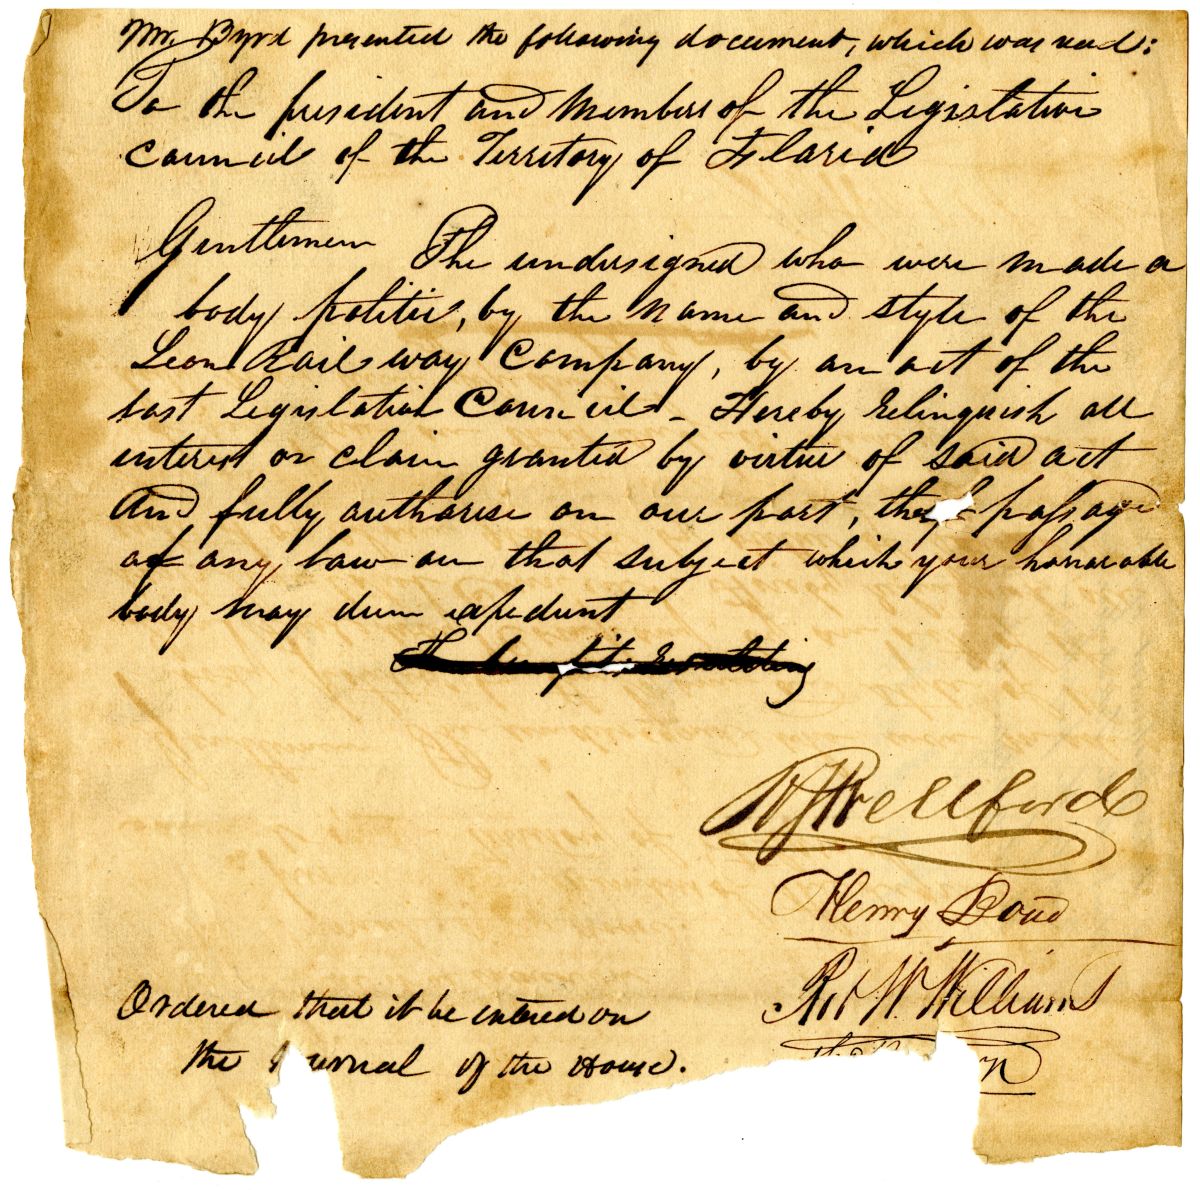 Mr. Byrd presented the following document, which was read:
To the president and Members of the Legislative
Council of the Territory of Florida
Gentlemen The undersigned who were made a
body politic, by the name and style of the
Leon Rail way Company, by an act of the
last Legislative Council - Hereby relinquish all
interest or claim granted by virtue of said act
And fully authorise on our part, the passage
of any law on that subject which your honorable
body may deem expedient
Henry Doud
Rd. W. Williams
Ordered that it be entered on
the Journal of the House.